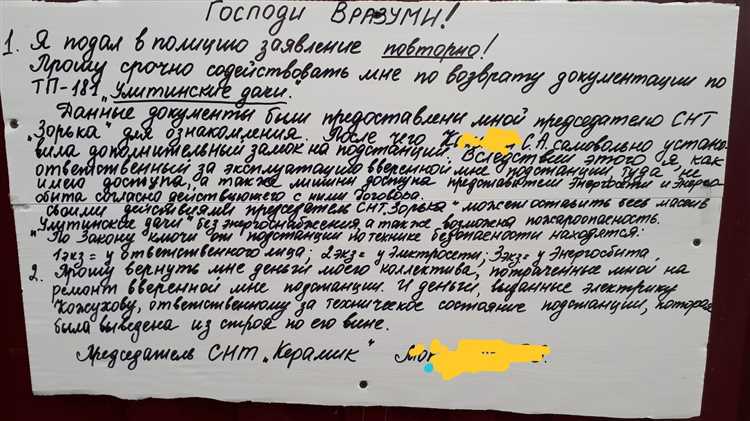 Господи Вразуми!
1. Я подал в полицию заявление повторно!
Прошу срочно содействовать мне по возврату документации по
ТП-181 „Улитинские дачи".
Данные документы были предоставлены мной председателю СНТ
"Зорька" для ознакомления. После чего С.А. самовольно устано-
вила дополнительный замок на подстанций. Вследствии этого я как
ответственный за эксплуатацию вверенной мне подстанции туда не
имею доступа, а также лишены доступа представители Энергосети и Энерго-
сбыта согласно действующего с ними договора.
Своими действиями председатель СНТ „Зорька" может оставить весь массив
"Улитинские дачи" без энергоснабжения, а также возможна пожароопасность.
"По Закону" ключи от подстанции по технике безопасности находятся:
1экз = у ответственного лица; 2экз = у Электросети; 3экз = у Энергосбыта,
2. Прошу вернуть мне деньги моего коллектива, потраченные мной на
ремонт вверенной мне подстанции. И деньги, выданные электрику
Кожухову, ответственному за техническое состояние подстанции, которая
была выведена из строя по его вине.
Председатель СНТ „Керамик"